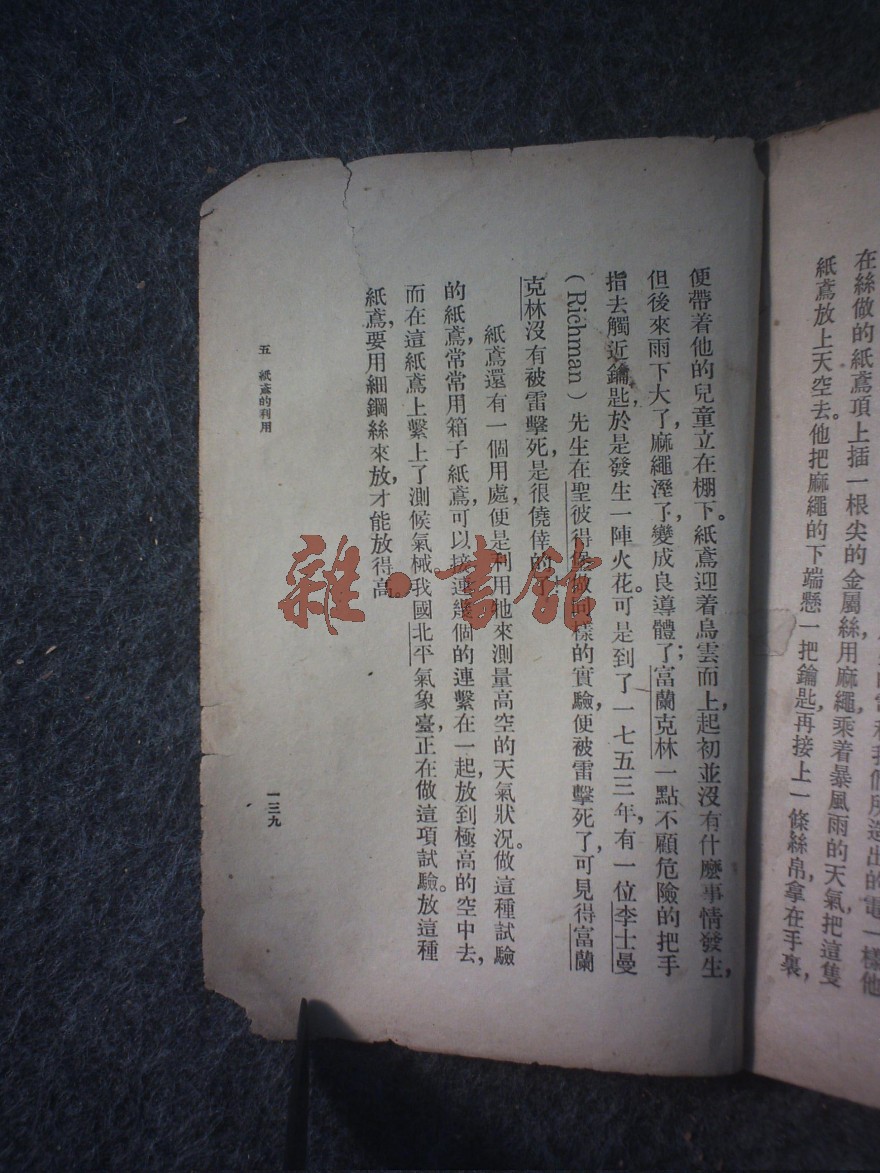 在絲做的紙鳶頂上插一根尖的金屬絲，用麻繩乘着暴風雨的天氣，把這隻
紙鳶放上天空去。他把麻繩的下端懸一把鑰匙，再接上一條絲帛，拿在手裏，
便帶着他的兒童立在棚下。紙鳶迎着烏雲而上，起初並沒有什麼事情發生，
但後來雨下大了，麻繩溼了，變成良導體了；富蘭克林一點不顧危險的把手
指去觸近鑰匙，於是發生一陣火花。可是到了一七五三年，有一位李士曼
（Richman）先生在聖彼得堡做同樣的實驗，便被雷擊死了，可見得富蘭
克林沒有被雷擊死，是很僥倖的了。
紙鳶還有一個用處，便是利用牠來測量高空的天氣狀況。做這種試驗
的紙鳶，常常用箱子紙鳶，可以接連幾個的連繫在一起，放到極高的空中去，
而在這紙鳶上繫上了測候氣械。我國北平氣象臺，正在做這項試驗。放這種
紙鳶，要用細鋼絲來放，才能放得高。
五 紙鳶的利用
一三九
雜·書館